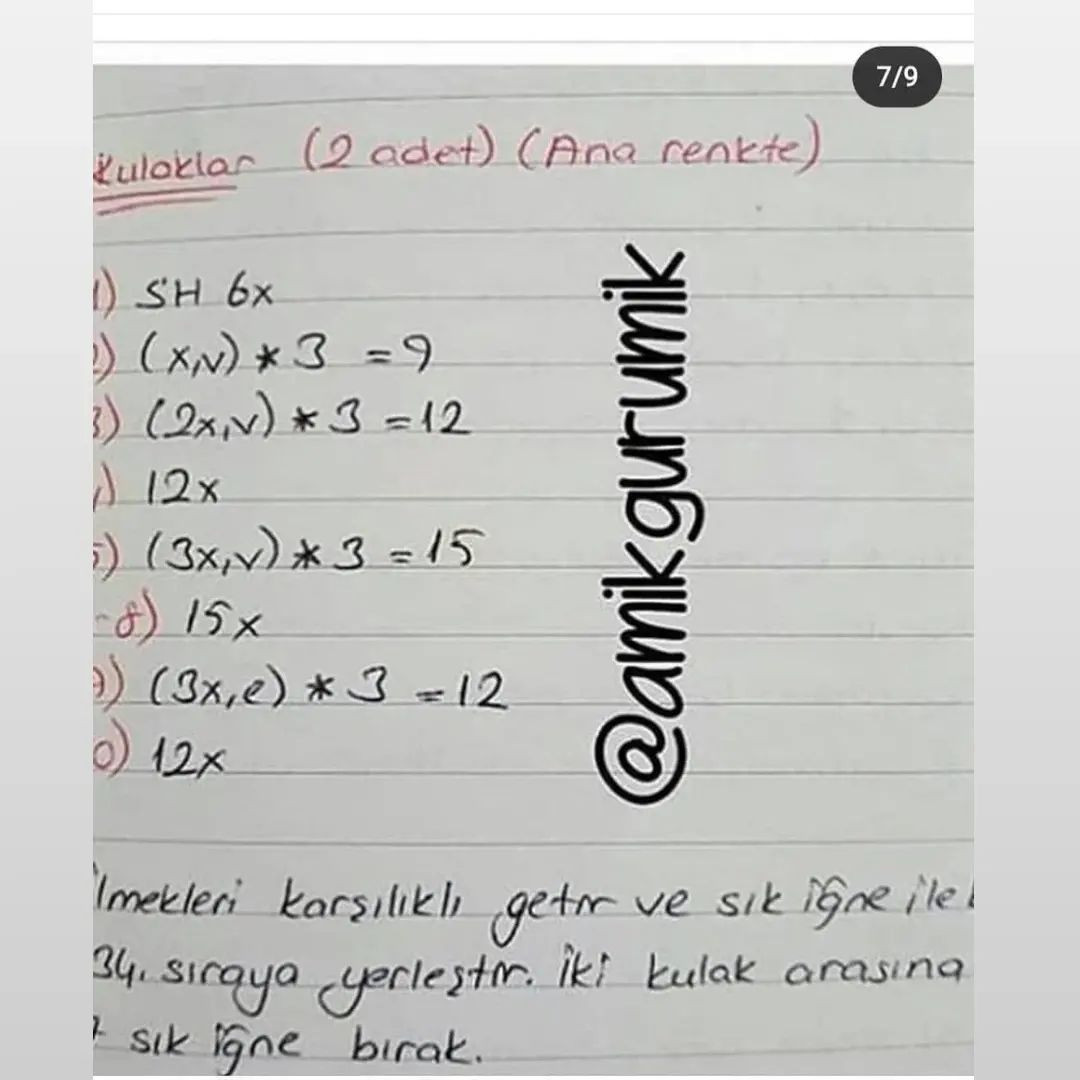 7/9
Kulaklar (2 adet) (Ana renkte)
1) SH 6x
2) (x,v) * 3 = 9
3) (2x,v) * 3 = 12
) 12x
5) (3x,v) * 3 = 15
-8) 15x
9) (3x,e) * 3 = 12
0) 12x
@amikgurumik
lmekleri karşılıklı getir ve sık iğne ile
34. sıraya yerleştir. İki kulak arasına
sık iğne bırak.